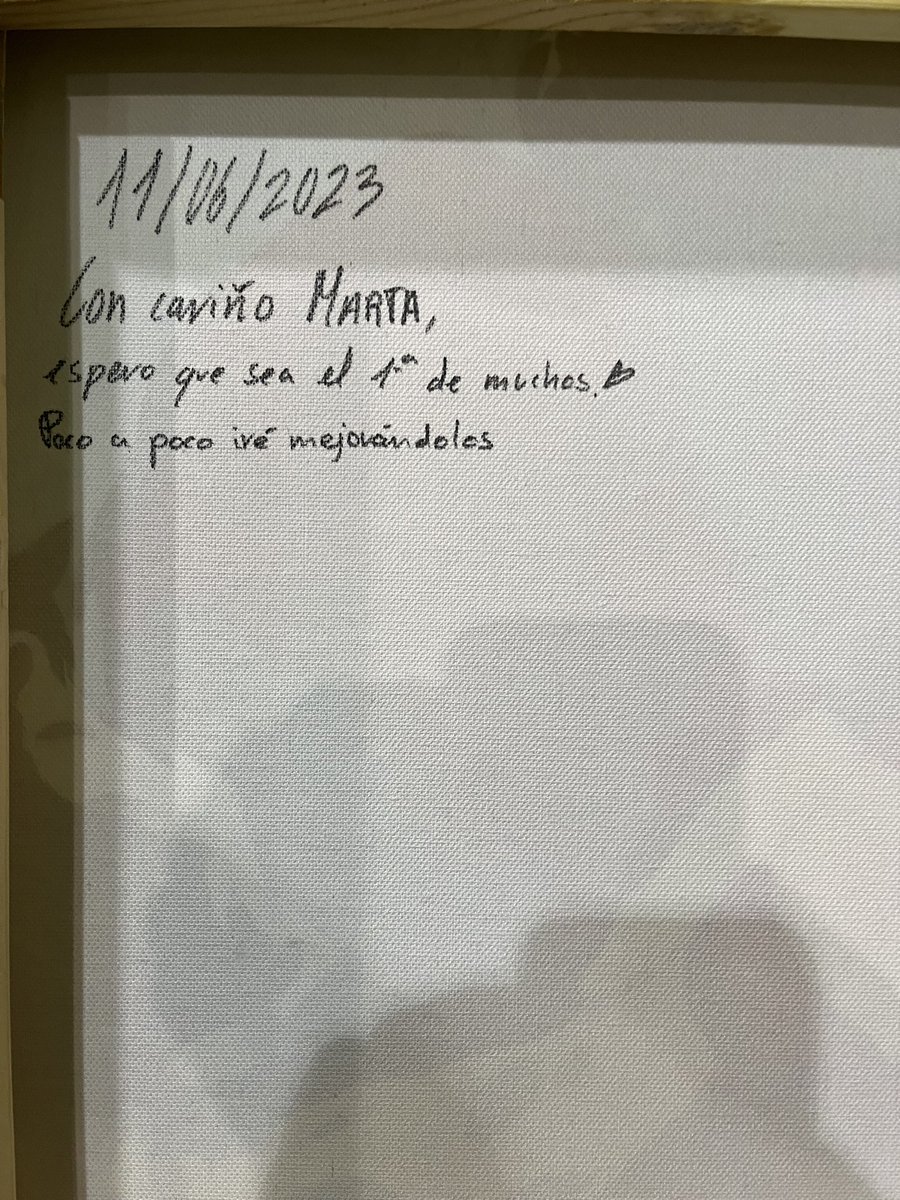 11/06/2023
Con cariño MARTA,
espero que sea el 1.º de muchos.
Poco a poco iré mejorándolos